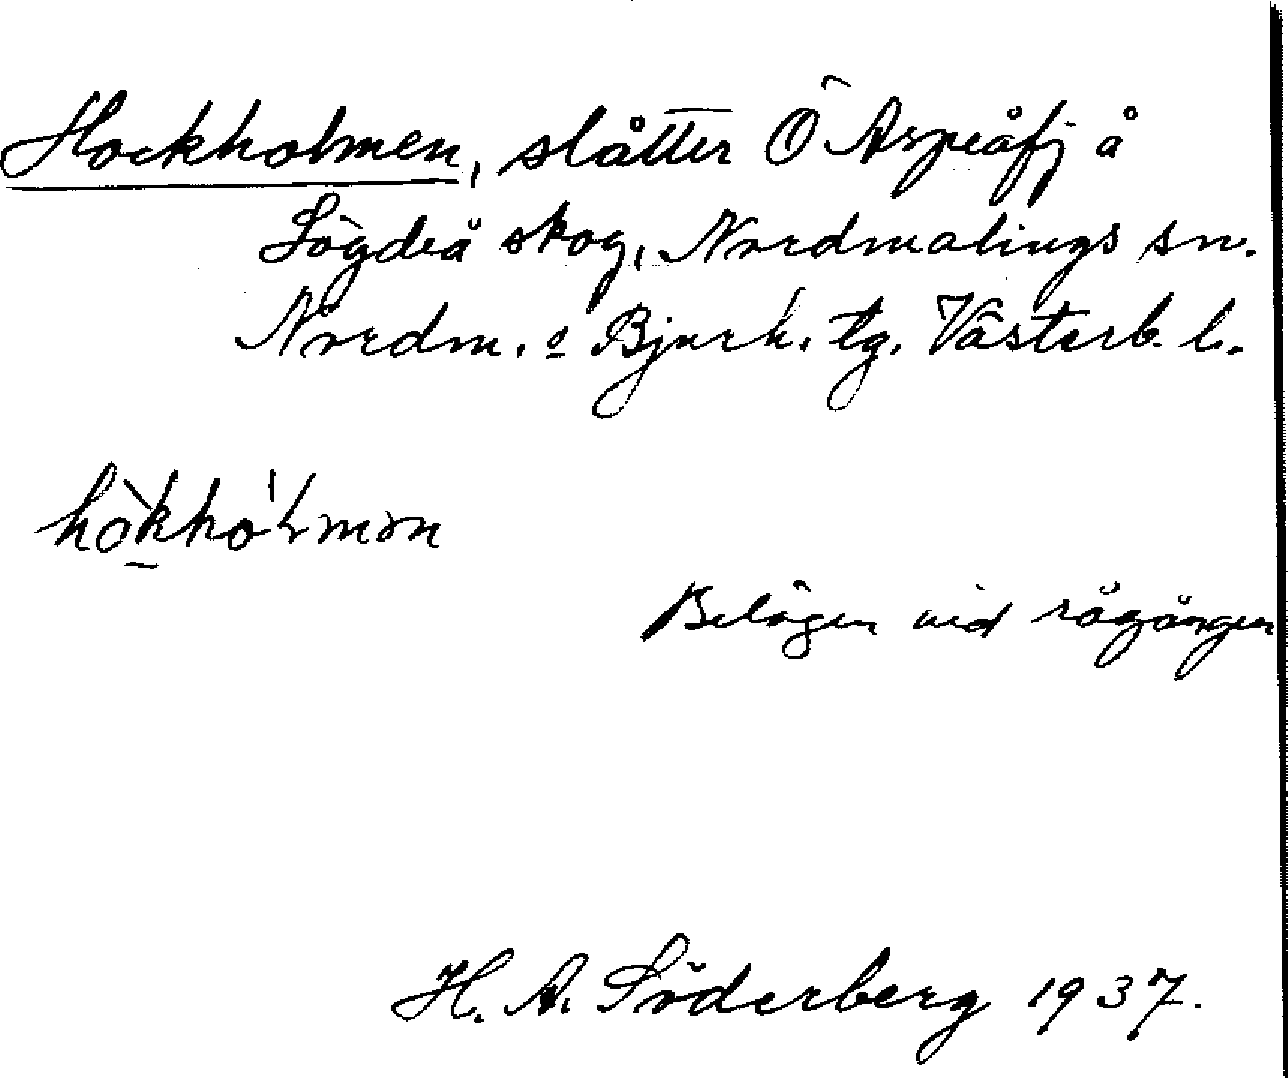 Hockholmen, slåtter Ö Aspeåfj å
Lögdeå skog, Nordmalings sn.
Nordm. o Bjurh. tg. Västerb. l.
Belägen vid rågången
H. A. Söderberg 1937.